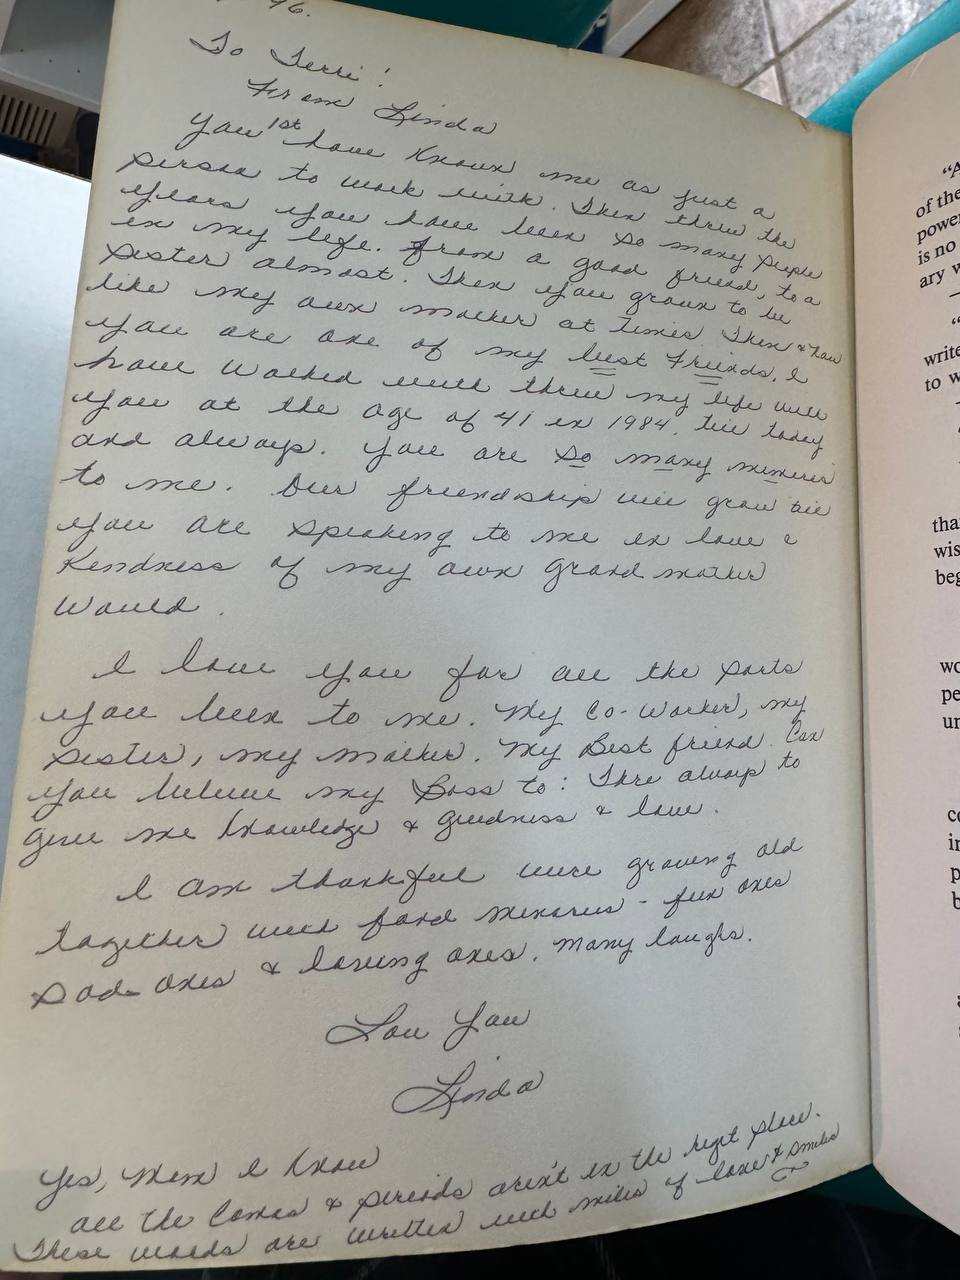 96.
To Terri!
From Linda
You 1st have known me as just a
person to work with. Then threw the
years you have been so many people
in my life. From a good friend, to a
sister almost. Then you grown to be
like my own mother at times. Then & now
you are one of my best friends. I
have walked with threw my life with
you at the age of 41 in 1984. till today
and always. You are so many
to me. Our friendship will grow till
you are speaking to me in love &
Kindness of my own grand mother
would.
I love you for all the parts
you been to me. My Co-Worker, my
sister, my mother. My Best friend. Can
you believe my Boss to: There always to
give me knowledge & & love.
I am thankful were growing old
together with fond - fun ones
sad ones & loving ones. Many laughs.
Lov You
Linda
Yes, Mom I know
all the Comas & periods aren't in the place.
These words are written with miles of love & smiles
"A
of the
power
is no
ary w
“
write
to w
tha
wis
beg
wo
pe
un
co
in
p
b